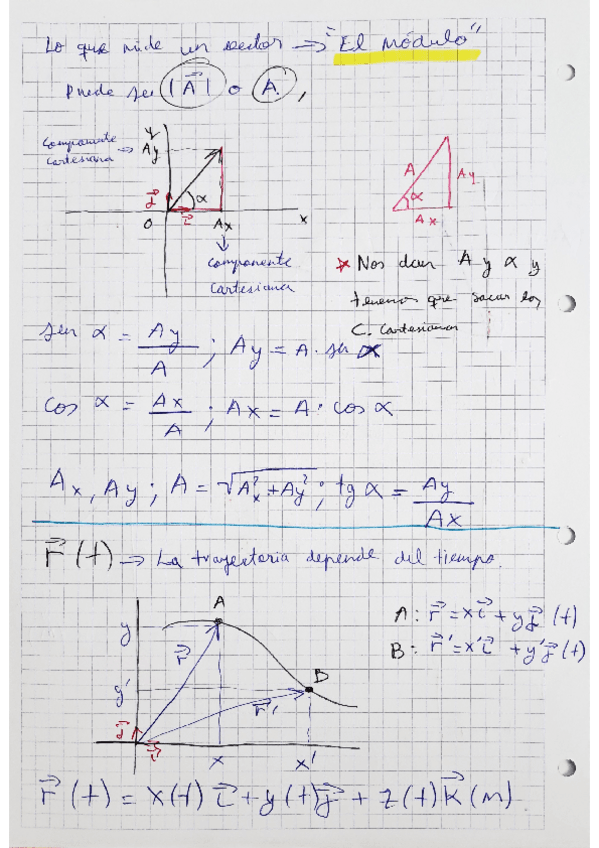 Lo que mide un vector → "El módulo"
Puede ser |A⃗| o A,
Componente
Cartesiana →
y
Ay
j⃗
α
i⃗
O
Ax
x
Componente
Cartesiana
A
Ay
α
Ax
* Nos dan A y α y
tenemos que sacar las
C. Cartesianas
sen α = Ay/A ; Ay = A · sen α
cos α = Ax/A ; Ax = A · cos α
Ax, Ay ; A = √Ax² + Ay² ; tg α = Ay/Ax
r⃗ (t) → La trayectoria depende del tiempo.
A
y
r⃗
B
y'
r⃗'
j⃗
i⃗
x
x'
A: r⃗ = xi⃗ + yj⃗ (t)
B: r⃗' = x'i⃗ + y'j⃗ (t)
r⃗ (t) = x(t) i⃗ + y(t)j⃗ + z(t)k⃗ (m)